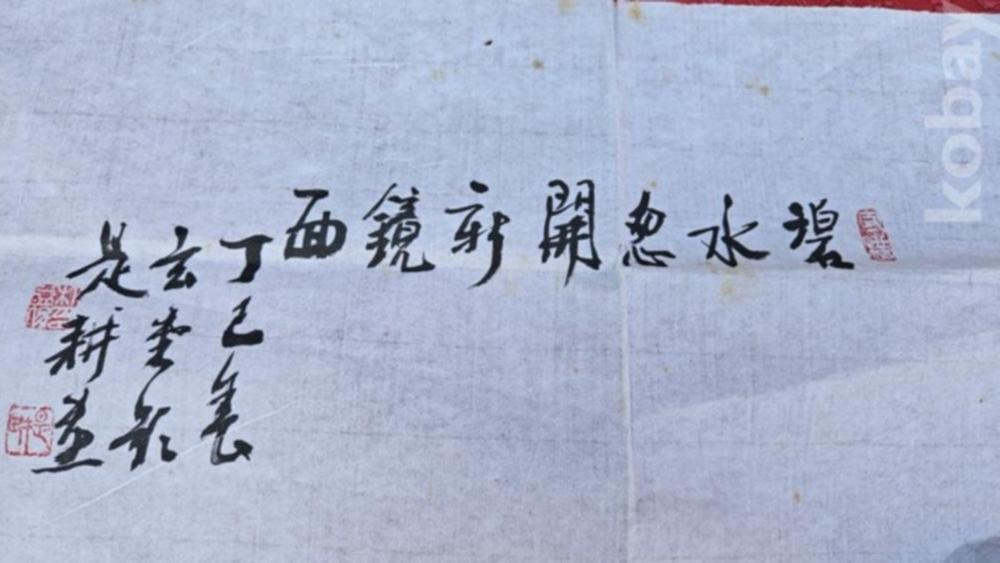 碧水忽開新鏡面
丁巳
玄堂題
是耕畫
kobay